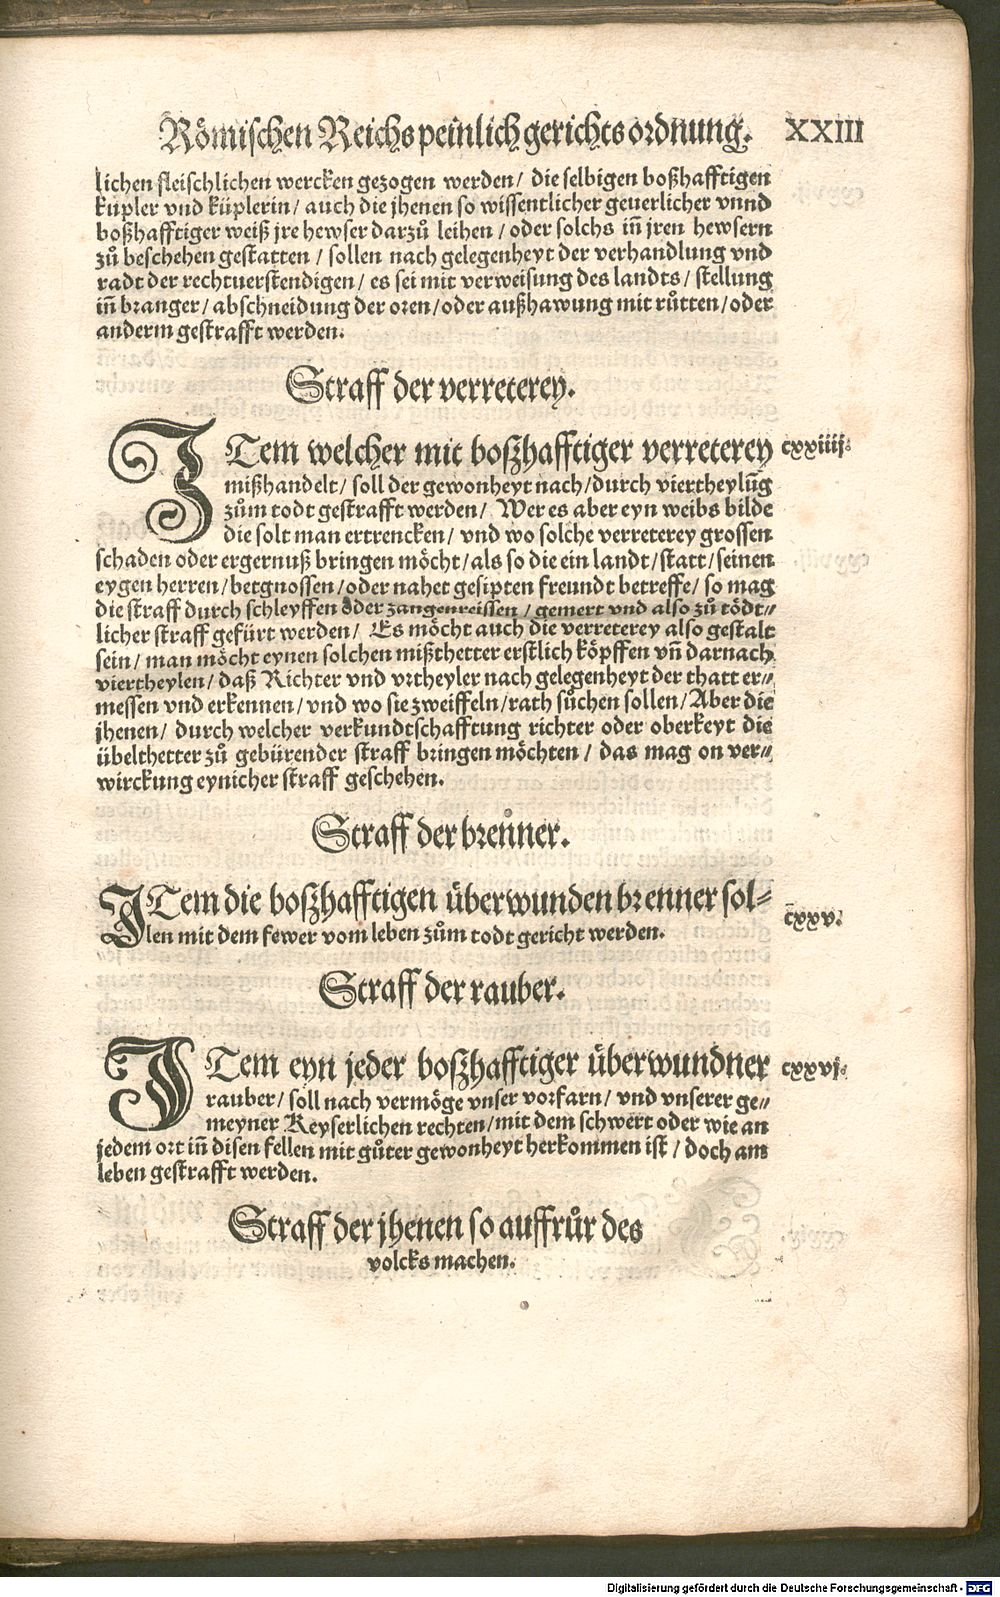 Römischen Reichs peinlich gerichts ordnung. XXIII
lichen fleischlichen wercken gezogen werden / die selbigen boßhafftigen
küpler vnd küplerin / auch die jhenen so wissentlicher geuerlicher vnnd
boßhafftiger weiß jre hewser darzů leihen / oder solchs iñ jren hewsern
zů beschehen gestatten / sollen nach gelegenheyt der verhandlung vnd
radt der rechtuerstendigen / es sei mit verweisung des landts / stellung
iñ branger / abschneidung der oren / oder außhawung mit růtten / oder
anderm gestrafft werden.
Straff der verreterey.
ITem welcher mit boßhafftiger verreterey cxxiiij.
mißhandelt / soll der gewonheyt nach / durch viertheylũg
zům todt gestrafft werden / Wer es aber eyn weibs bilde
die solt man ertrencken / vnd wo solche verreterey grossen
schaden oder ergernuß bringen möcht / als so die ein landt / statt / seinen
eygen herren / betgnossen / oder nahet gesipten freundt betreffe / so mag
die straff durch schleyffen oder zangenreissen / gemert vnd also zů tödt⸗
licher straff gefürt werden / Es möcht auch die verreterey also gestalt
sein / man möcht eynen solchen mißthetter erstlich köpffen vñ darnach
viertheylen / daß Richter vnd vrtheyler nach gelegenheyt der thatt er⸗
messen vnd erkennen / vnd wo sie zweiffeln / rath sůchen sollen / Aber die
jhenen / durch welcher verkundtschafftung richter oder oberkeyt die
übelthetter zů gebürender straff bringen möchten / das mag on ver⸗
wirckung eynicher straff geschehen.
Straff der brenner.
ITem die boßhafftigen überwunden brenner sol⸗ cxxv.
len mit dem fewer vom leben zům todt gericht werden.
Straff der rauber.
ITem eyn jeder boßhafftiger überwundner cxxvj.
rauber / soll nach vermöge vnser vorfarn / vnd vnserer ge⸗
meyner Keyserlichen rechten / mit dem schwert oder wie an
jedem ort iñ disen fellen mit gůter gewonheyt herkommen ist / doch am
leben gestrafft werden.
Straff der jhenen so auffrůr des
volcks machen.
Digitalisierung gefördert durch die Deutsche Forschungsgemeinschaft - DFG